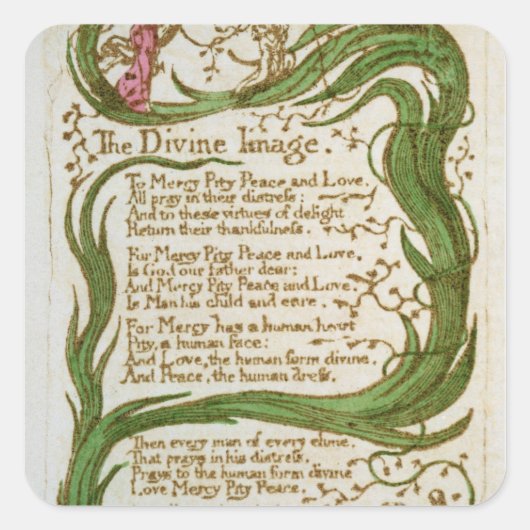 The Divine Image.
To Mercy Pity Peace and Love.
All pray in their distress:
And to these virtues of delight
Return their thankfulness.
For Mercy Pity Peace and Love.
Is God our father dear:
And Mercy Pity Peace and Love.
Is Man his child and care.
For Mercy has a human heart
Pity, a human face:
And Love, the human form divine.
And Peace, the human dress.
Then every man of every clime.
That prays in his distress.
Prays to the human form divine
Love Mercy Pity Peace.